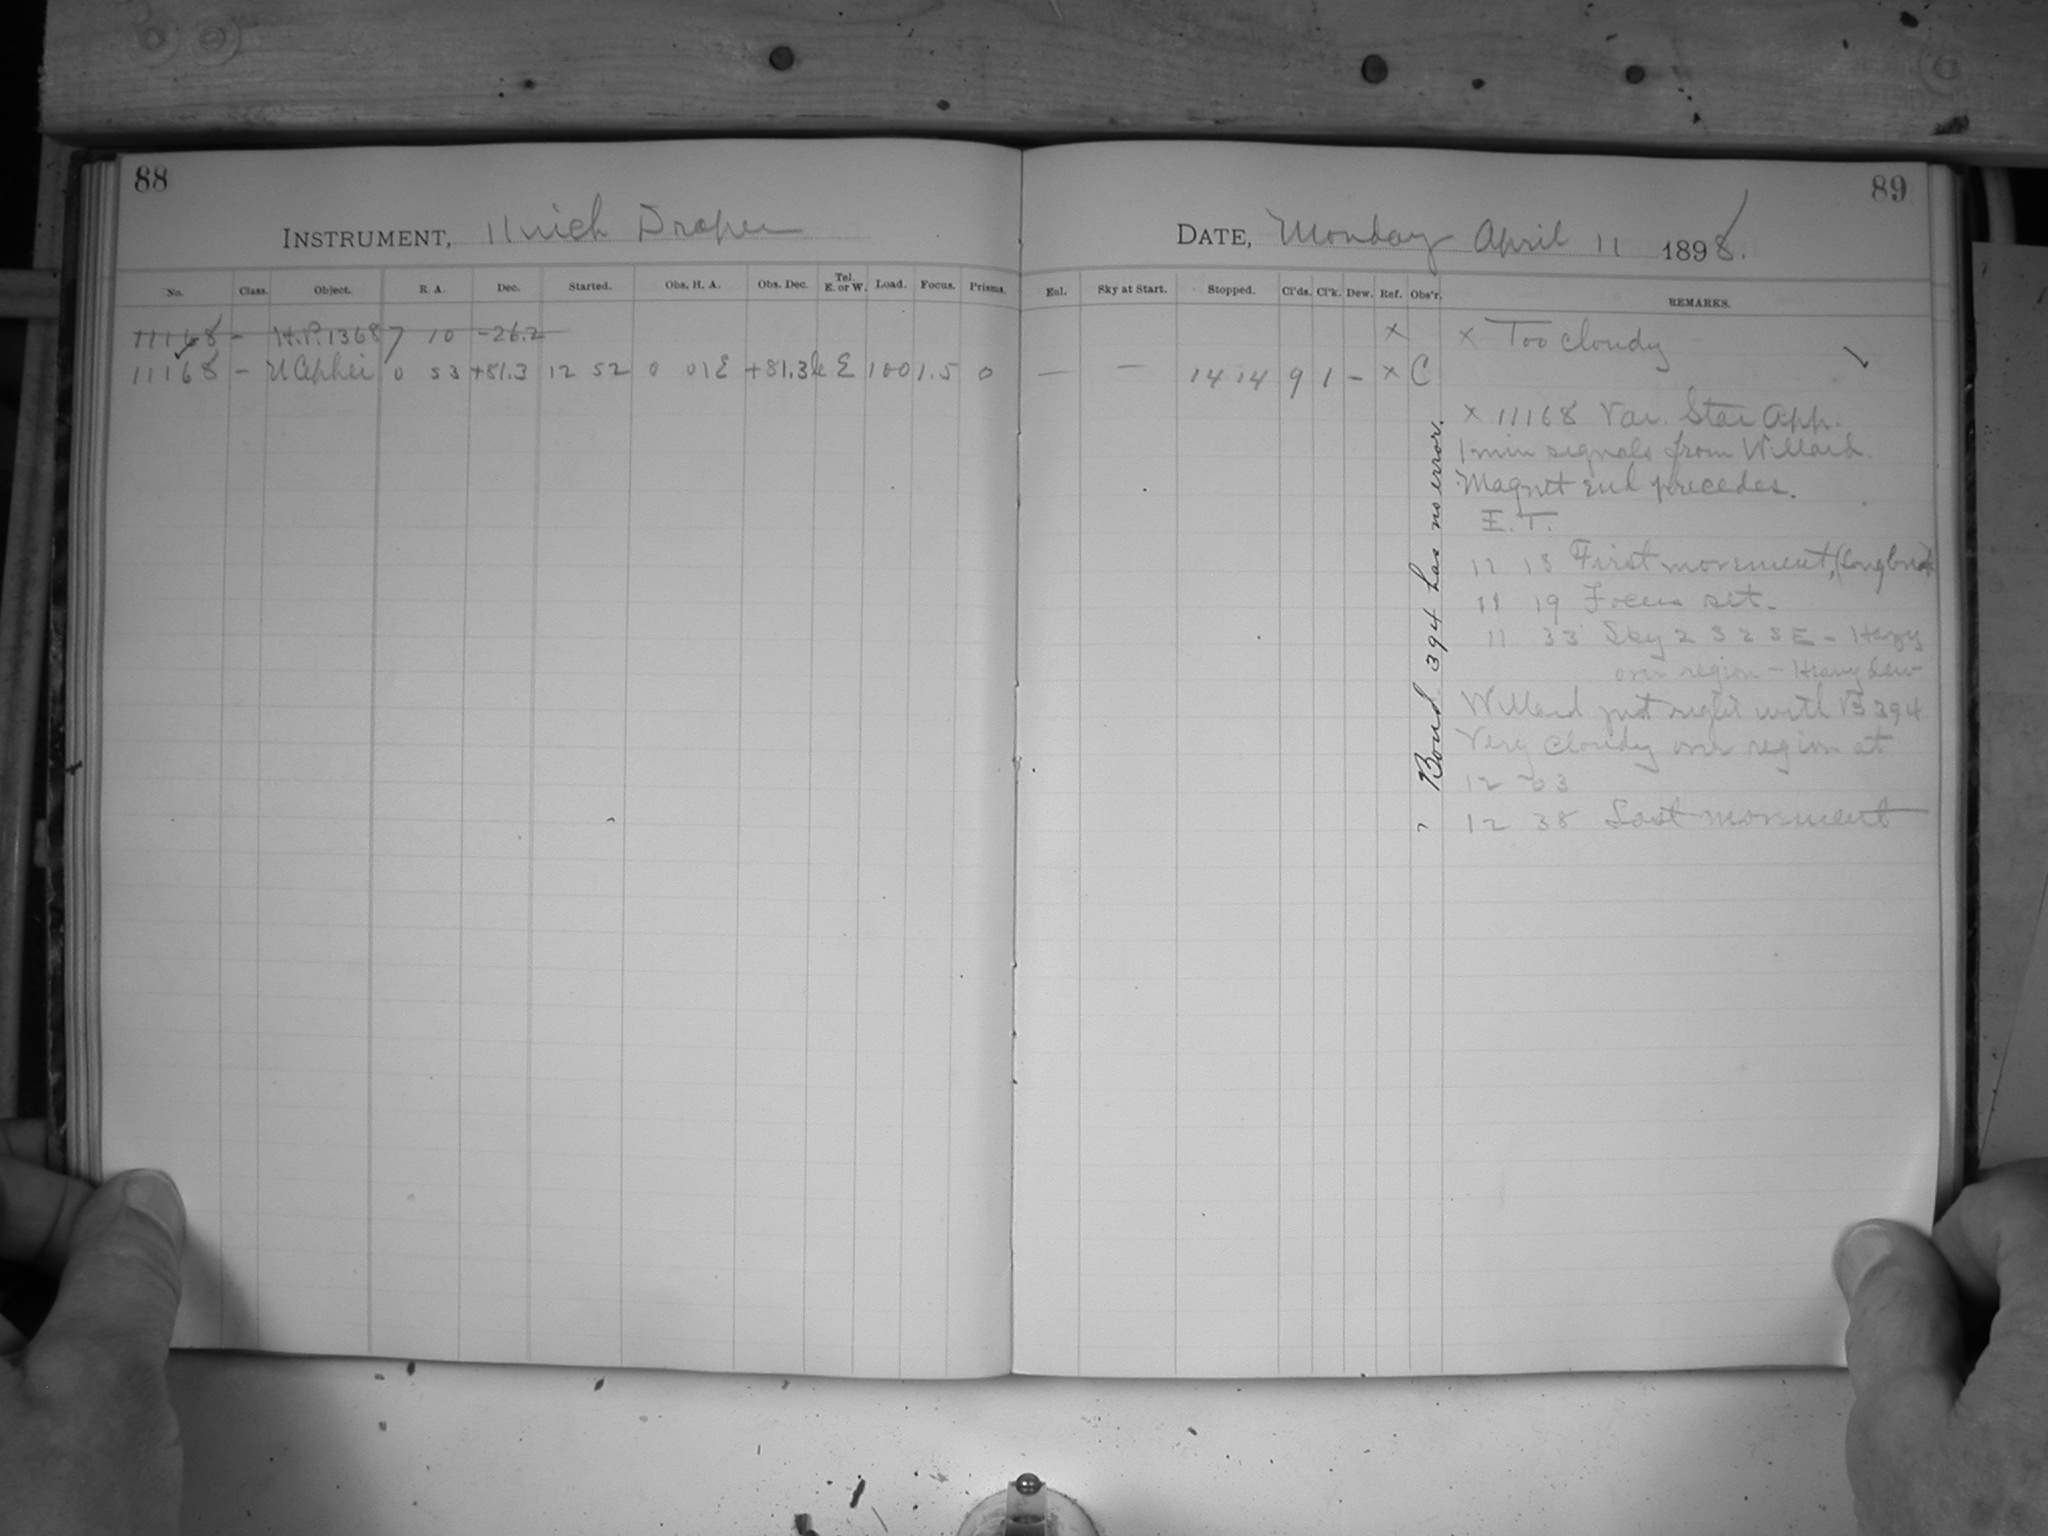 88
INSTRUMENT, 11 inch Draper
No. Class. Object. R. A. Dec. Started. Obs. H. A. Obs. Dec. Tel. E. or W. Load. Focus. Prisms.
11168 – H.P. 1368 7 10 -26.2
11168 – U Cephei 0 53 +81.3 12 52 0 01 E +81.3 E 100 1.5 0
89
DATE, Monday April 11 1898.
Eul. Sky at Start. Stopped. Cl'ds. Cl'k. Dew. Ref. Obs'r. REMARKS.
x x Too cloudy
— — 14 14 9 1 – x C
x 11168 Var. Star App.
1 min signals from Willard.
Magnet end precedes.
E. T.
11 18 First movement, (long break)
11 19 Focus set.
11 33 Sky 2 S 2 S E – Hazy
over region – Heavy dew
Willard just right with B 394
Very cloudy over region at
12 03
12 38 Last movement
Bond 394 has no error.